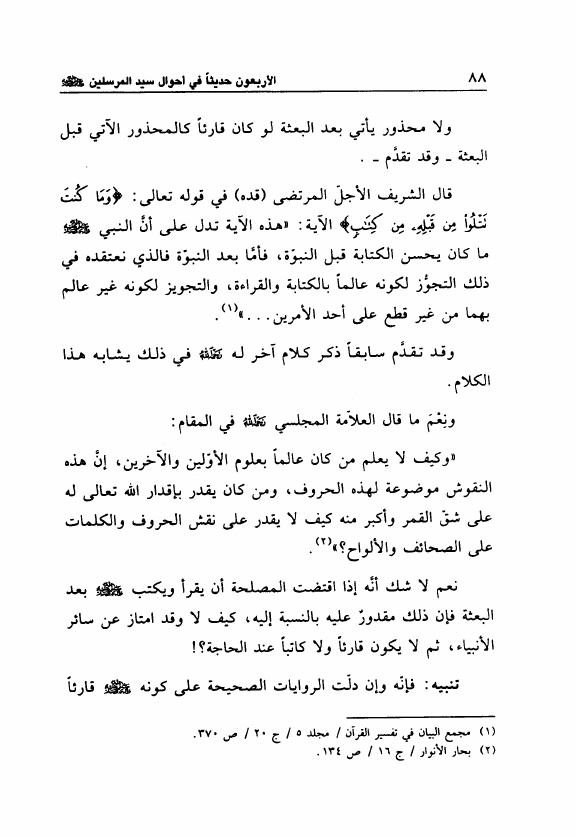 ٨٨ الأربعون حديثاً في أحوال سيد المرسلين ﷺ
ولا محذور يأتي بعد البعثة لو كان قارئاً كالمحذور الآتي قبل
البعثة ـ وقد تقدَّم ـ .
قال الشريف الأجلّ المرتضى (قده) في قوله تعالى: ﴿وَمَا كُنتَ
نَتْلُواْ مِن قَبْلِهِۦ مِن كِتَٰبٍ﴾ الآية: «هذه الآية تدل على أنَّ النبي ﷺ
ما كان يحسن الكتابة قبل النبوّة، فأمَّا بعد النبوّة فالذي نعتقده في
ذلك التجوُّز لكونه عالماً بالكتابة والقراءة، والتجويز لكونه غير عالم
بهما من غير قطع على أحد الأمرين...»(١).
وقد تقدَّم سابقاً ذكر كلام آخر له في ذلك يشابه هذا
الكلام.
ونِعْمَ ما قال العلاّمة المجلسي في المقام:
«وكيف لا يعلم من كان عالماً بعلوم الأوّلين والآخرين، إنَّ هذه
النقوش موضوعة لهذه الحروف، ومن كان يقدر بإقدار الله تعالى له
على شقّ القمر وأكبر منه كيف لا يقدر على نقش الحروف والكلمات
على الصحائف والألواح؟»(٢).
نعم لا شك أنَّه إذا اقتضت المصلحة أن يقرأ ويكتب ﷺ بعد
البعثة فإن ذلك مقدورٌ عليه بالنسبة إليه، كيف لا وقد امتاز عن سائر
الأنبياء، ثم لا يكون قارئاً ولا كاتباً عند الحاجة؟!
تنبيه: فإنّه وإن دلّت الروايات الصحيحة على كونه ﷺ قارئاً
(١) مجمع البيان في تفسير القرآن / مجلد ٥ / ج ٢٠ / ص ٣٧٠.
(٢) بحار الأنوار / ج ١٦ / ص ١٣٤.